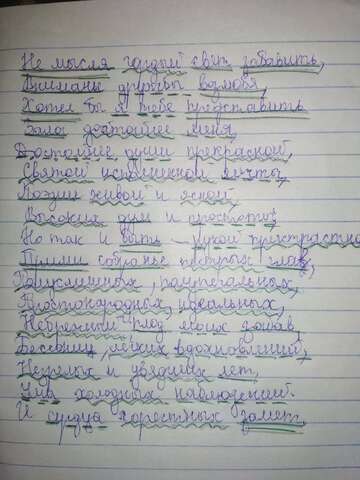 Не мысля гордый свет забавить,
Вниманье дружбы возлюбя,
Хотел бы я тебе представить
Залог достойнее тебя,
Достойнее души прекрасной,
Святой исполненной мечты,
Поэзии живой и ясной,
Высоких дум и простоты;
Но так и быть - рукой пристрастной
Прими собранье пестрых глав,
Полусмешных, полупечальных,
Простонародных, идеальных,
Небрежный плод моих забав,
Бессонниц, легких вдохновений,
Незрелых и увядших лет,
Ума холодных наблюдений
И сердца горестных замет.